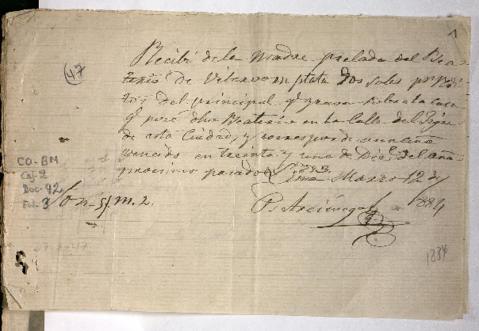 1
47
Recibí de la Madre prelada del Bea-
terio de Viterbo en plata dos soles por rédi-
tos del principal qe grava sobre la casa
qe posé dho Beaterio en la Calle del
de esta Ciudad, y corresponde un año
vencido en treinta y uno de Dice. del año
procsimo pasado. Lima Marzo 12 de
1884
Son-S/. m. 2.
CO-BM
Caj-2
Doc-92
Fol-3
1884